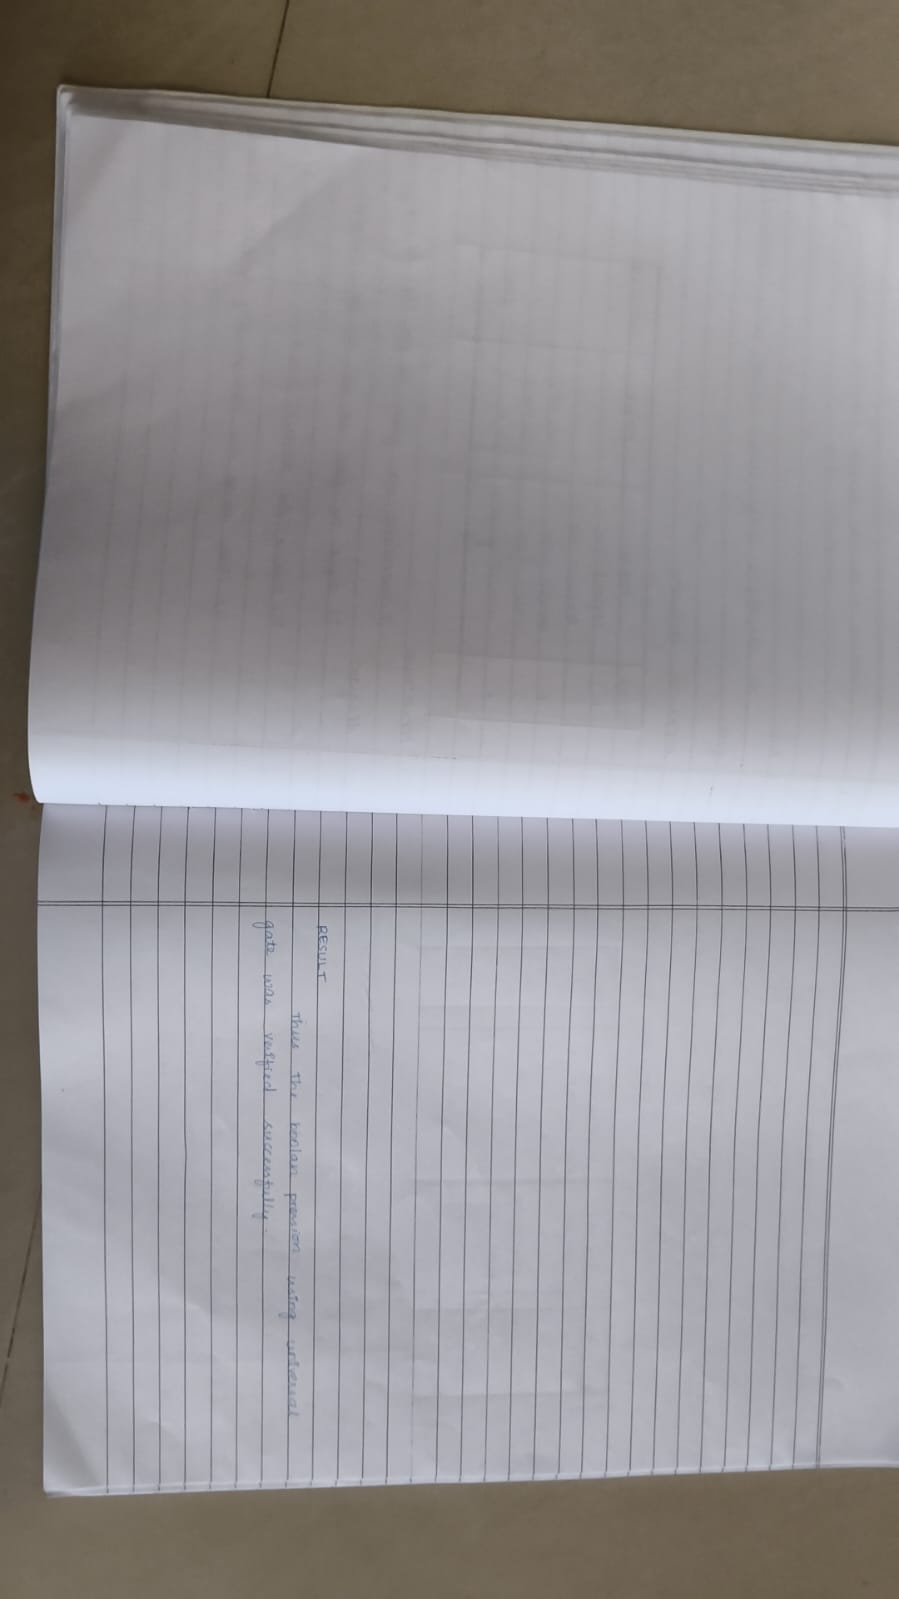 RESULT
Thus the boolan pression using universal
gate was verified successfully.